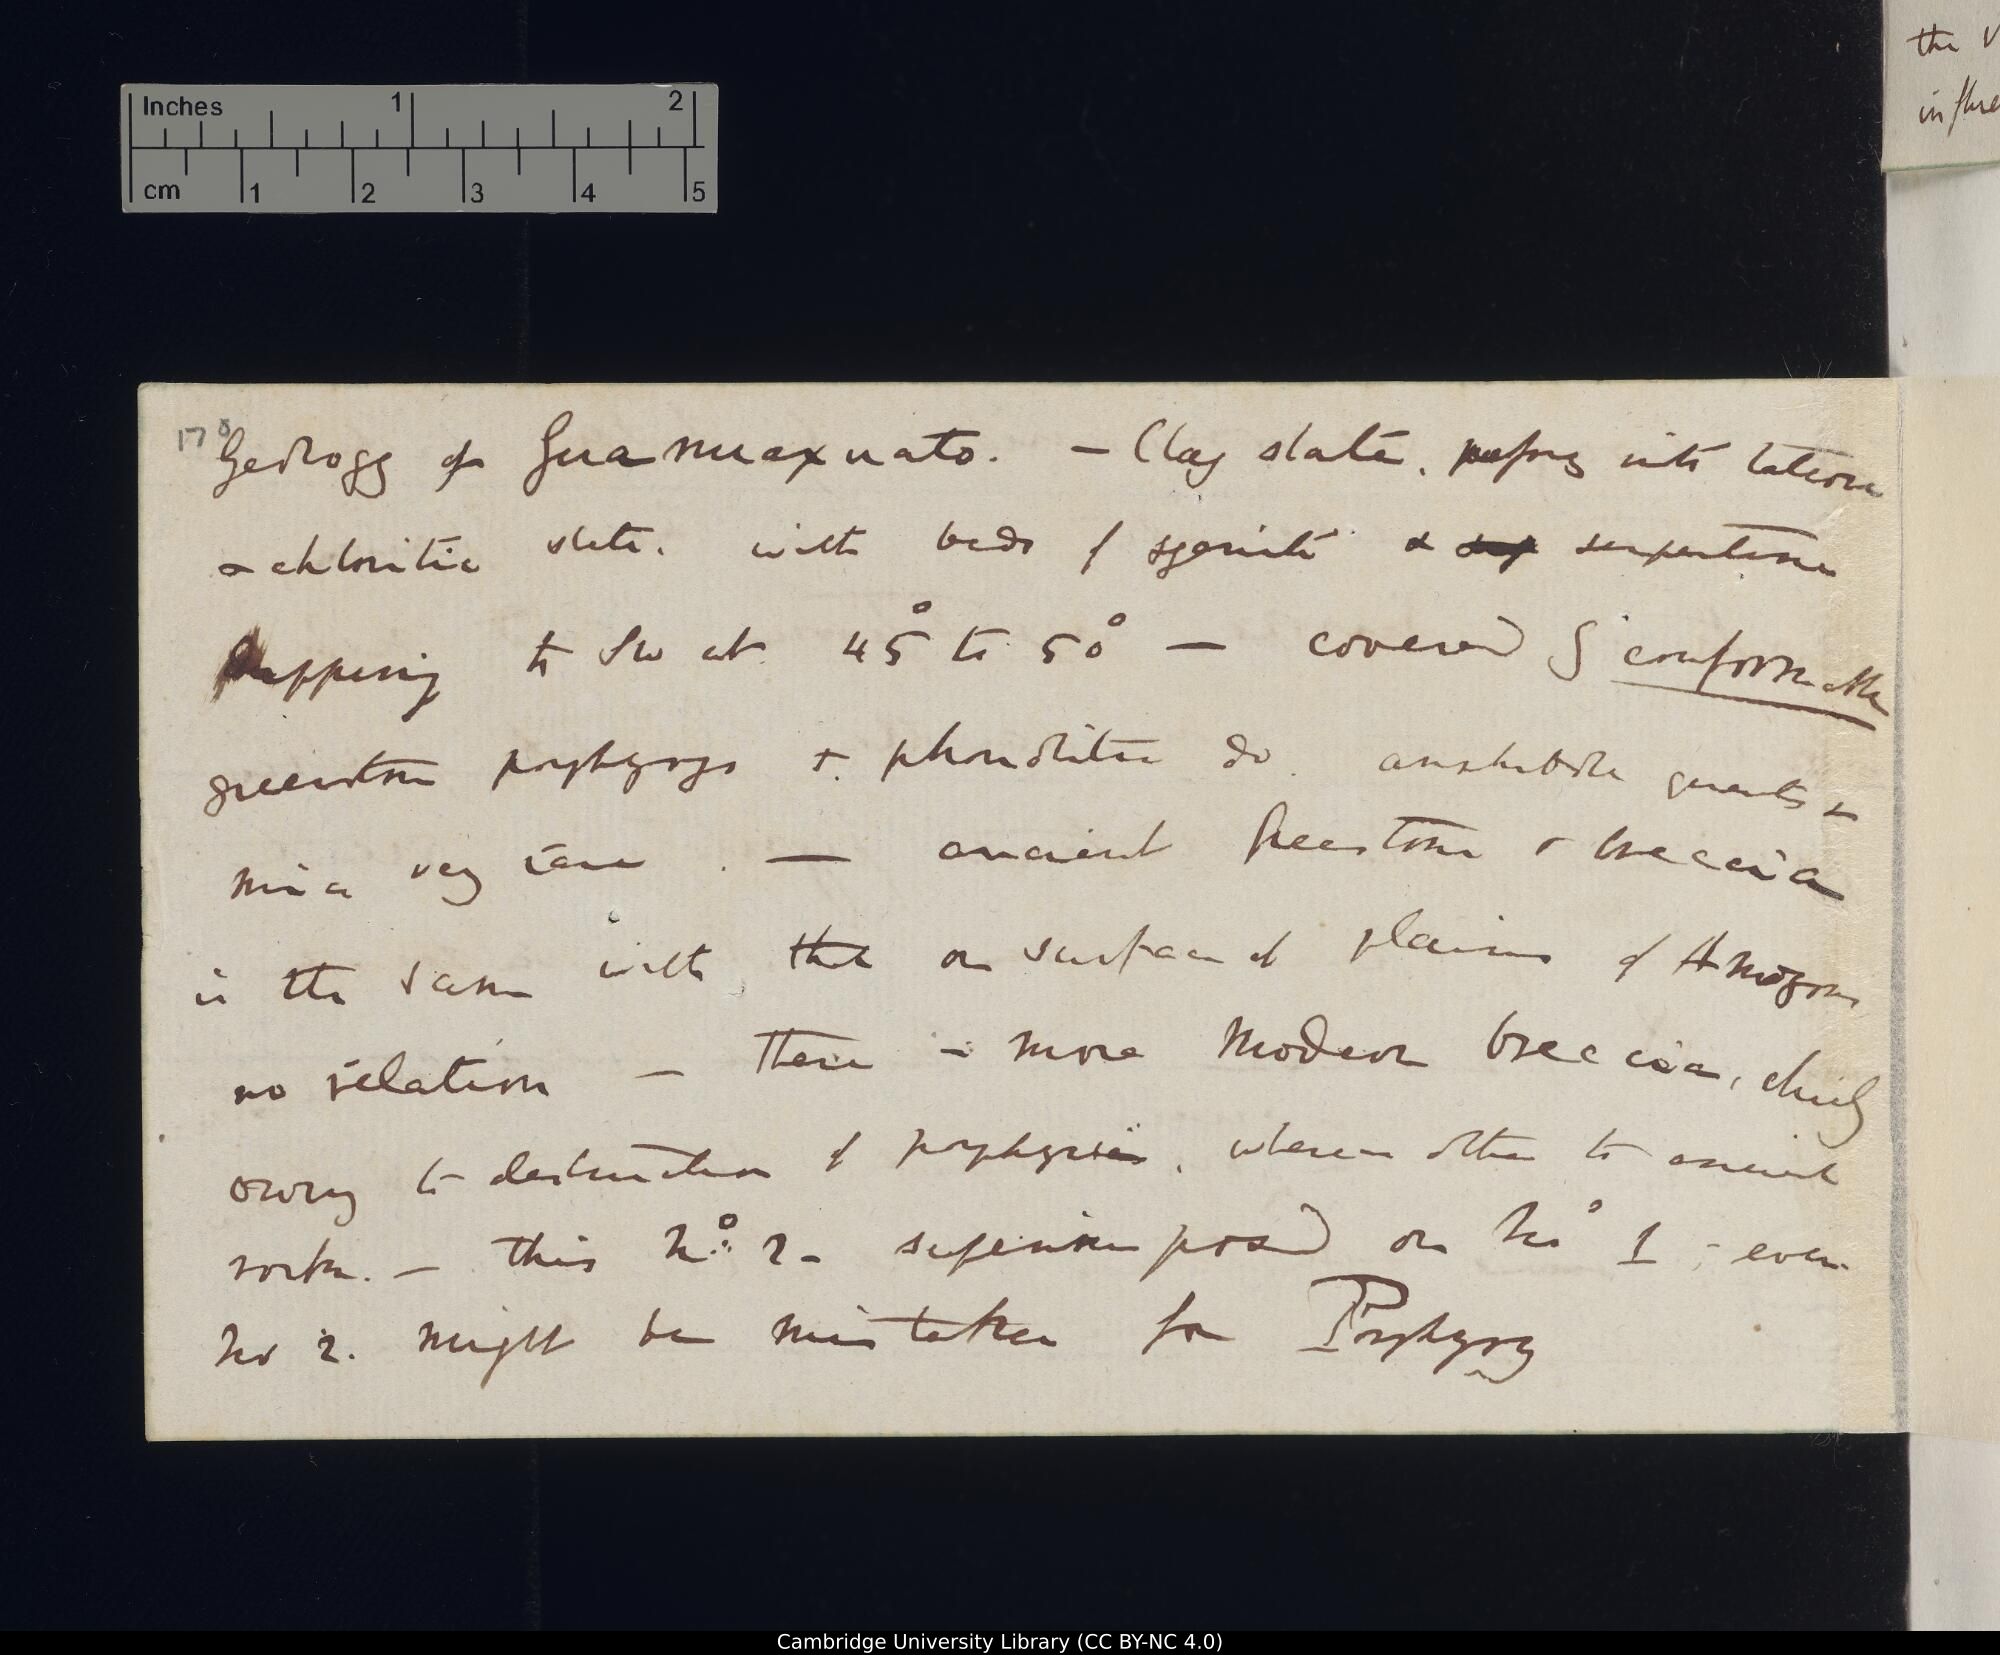 the
Inches 1 2
cm 1 2 3 4 5
178
Geology of Guanuaxuato. — Clay slate, passing into talcose
& chloritic slate. with beds of syenite & serpentine
dipping to SW at 45° to 50° — covered conformable
greenstone porphyrys & phonolites do. amphibole quartz &
mica very rare. — ancient freestone & breccia
is the same with that on surface of plains of Amazons
no relation — There is more modern breccia, chiefly
owing to destruction of porphyries, whereas other to ancient
rocks. — this No. 2. superimposed on No 1 — even
No 2. might be mistaken for Porphyry
Cambridge University Library (CC BY-NC 4.0)